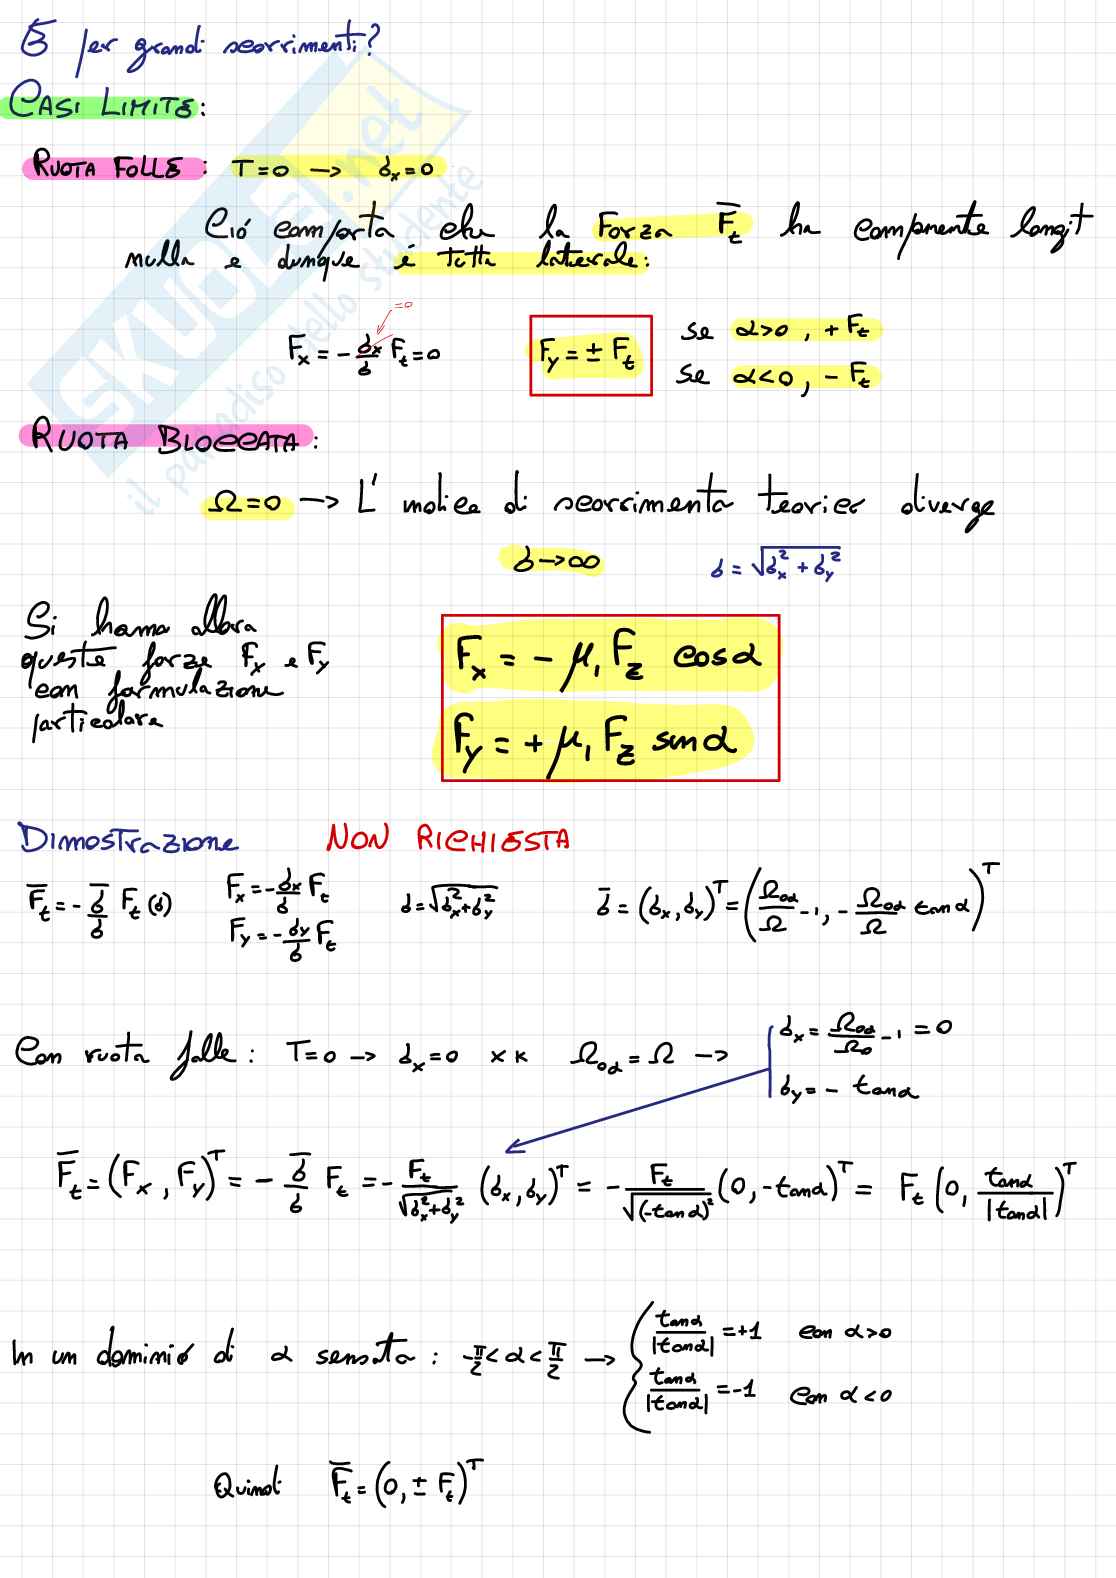 E per grandi scorrimenti?
CASI LIMITE:
RUOTA FOLLE: T=0 → σₓ=0
Ció comporta che la Forza F̅ₜ ha componente longit
nulla e dunque é tutta laterale:
=0
Fₓ = - σₓ/σ Fₜ = 0
F_y = ± Fₜ
se α>0, + Fₜ
se α<0, - Fₜ
RUOTA BLOCCATA:
Ω=0 → L' indice di scorrimento teorico diverge
σ→∞
σ = √(σₓ² + σ_y²)
Si hanno allora
queste forze Fₓ e F_y
con formulazione
particolare
Fₓ = - μ₁ F_z cosα
F_y = + μ₁ F_z sinα
DIMOSTRAZIONE NON RICHIESTA
F̅ₜ = - σ̅/σ Fₜ(σ)
Fₓ = - σₓ/σ Fₜ
F_y = - σ_y/σ Fₜ
σ = √(σₓ²+σ_y²)
σ̅ = (σₓ, σ_y)ᵀ = (Ω₀α/Ω - 1, - Ω₀α/Ω tanα)ᵀ
Con ruota folle: T=0 → σₓ=0 xk Ω₀α = Ω →
σₓ = Ω₀α/Ω₀ - 1 = 0
σ_y = - tanα
F̅ₜ = (Fₓ, F_y)ᵀ = - σ̅/σ Fₜ = - Fₜ/√(σₓ²+σ_y²) (σₓ, σ_y)ᵀ = - Fₜ/√((-tanα)²) (0, -tanα)ᵀ = Fₜ (0, tanα/|tanα|)ᵀ
In un dominio di α sensato: -π/2 < α < π/2 →
tanα/|tanα| = +1 con α>0
tanα/|tanα| = -1 con α<0
Quindi F̅ₜ = (0, ± Fₜ)ᵀ
SKUOLA.net
il paradiso dello studente